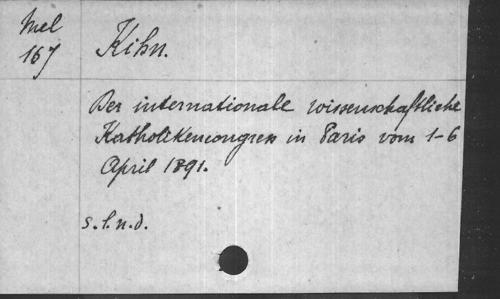 Mel
167
Kihn.
Der internationale wissenschaftliche
Katholikencongress in Paris vom 1-6
April 1891.
s.l.n.d.